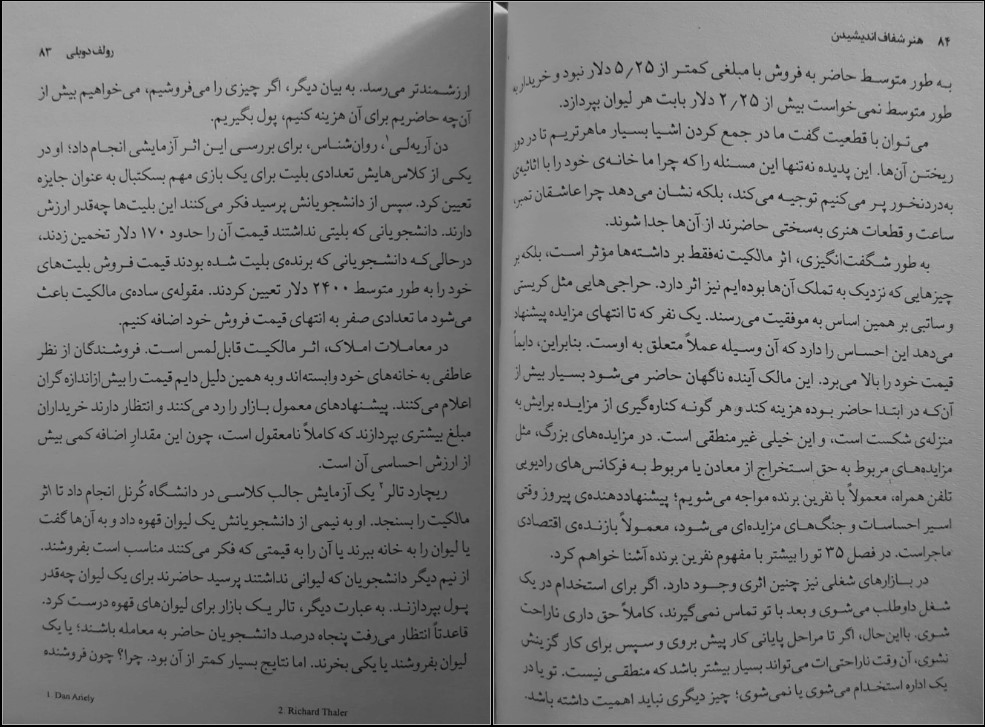 رولف دوبلی ۸۳
ارزشمندتر می‌رسد. به بیان دیگر، اگر چیزی را می‌فروشیم، می‌خواهیم بیش از
آن‌چه حاضریم برای آن هزینه کنیم، پول بگیریم.
دن آریه‌لی۱، روان‌شناس، برای بررسی این اثر آزمایشی انجام داد؛ او در
یکی از کلاس‌هایش تعدادی بلیت برای یک بازی مهم بسکتبال به عنوان جایزه
تعیین کرد. سپس از دانشجویانش پرسید فکر می‌کنند این بلیت‌ها چه‌قدر ارزش
دارند. دانشجویانی که بلیتی نداشتند قیمت آن را حدود ۱۷۰ دلار تخمین زدند،
درحالی‌که دانشجویانی که برنده‌ی بلیت شده بودند قیمت فروش بلیت‌های
خود را به طور متوسط ۲۴۰۰ دلار تعیین کردند. مقوله‌ی ساده‌ی مالکیت باعث
می‌شود ما تعدادی صفر به انتهای قیمت فروش خود اضافه کنیم.
در معاملات املاک، اثر مالکیت قابل‌لمس است. فروشندگان از نظر
عاطفی به خانه‌های خود وابسته‌اند و به همین دلیل دایم قیمت را بیش‌ازاندازه گران
اعلام می‌کنند. پیشنهادهای معمول بازار را رد می‌کنند و انتظار دارند خریداران
مبلغ بیشتری بپردازند که کاملاً نامعقول است، چون این مقدارِ اضافه کمی بیش
از ارزش احساسی آن است.
ریچارد تالر۲ یک آزمایش جالب کلاسی در دانشگاه کُرنل انجام داد تا اثر
مالکیت را بسنجد. او به نیمی از دانشجویانش یک لیوان قهوه داد و به آن‌ها گفت
یا لیوان را به خانه ببرند یا آن را به قیمتی که فکر می‌کنند مناسب است بفروشند.
از نیم دیگر دانشجویان که لیوانی نداشتند پرسید حاضرند برای یک لیوان چه‌قدر
پول بپردازند. به عبارت دیگر، تالر یک بازار برای لیوان‌های قهوه درست کرد.
قاعدتاً انتظار می‌رفت پنجاه درصد دانشجویان حاضر به معامله باشند؛ یا یک
لیوان بفروشند یا یکی بخرند. اما نتایج بسیار کمتر از آن بود. چرا؟ چون فروشنده
1. Dan Ariely
2. Richard Thaler
۸۴ هنر شفاف اندیشیدن
به طور متوسط حاضر به فروش با مبلغی کمتر از ۵٫۲۵ دلار نبود و خریدار به
طور متوسط نمی‌خواست بیش از ۲٫۲۵ دلار بابت هر لیوان بپردازد.
می‌توان با قطعیت گفت ما در جمع کردن اشیا بسیار ماهرتریم تا در دور
ریختن آن‌ها. این پدیده نه‌تنها این مسئله را که چرا ما خانه‌ی خود را با اثاثیه‌ی
به‌دردنخور پر می‌کنیم توجیه می‌کند، بلکه نشان می‌دهد چرا عاشقان تمبر،
ساعت و قطعات هنری به‌سختی حاضرند از آن‌ها جدا شوند.
به طور شگفت‌انگیزی، اثر مالکیت نه‌فقط بر داشته‌ها مؤثر است، بلکه بر
چیزهایی که نزدیک به تملک آن‌ها بوده‌ایم نیز اثر دارد. حراجی‌هایی مثل کریستی
و ساتبی بر همین اساس به موفقیت می‌رسند. یک نفر که تا انتهای مزایده پیشنهاد
می‌دهد این احساس را دارد که آن وسیله عملاً متعلق به اوست. بنابراین، دایماً
قیمت خود را بالا می‌برد. این مالک آینده ناگهان حاضر می‌شود بسیار بیش از
آن‌که در ابتدا حاضر بوده هزینه کند و هر گونه کناره‌گیری از مزایده برایش به
منزله‌ی شکست است، و این خیلی غیرمنطقی است. در مزایده‌های بزرگ، مثل
مزایده‌های مربوط به حق استخراج از معادن یا مربوط به فرکانس‌های رادیویی
تلفن همراه، معمولاً با نفرین برنده مواجه می‌شویم؛ پیشنهاددهنده‌ی پیروز وقتی
اسیر احساسات و جنگ‌های مزایده‌ای می‌شود، معمولاً بازنده‌ی اقتصادی
ماجراست. در فصل ۳۵ تو را بیشتر با مفهوم نفرین برنده آشنا خواهم کرد.
در بازارهای شغلی نیز چنین اثری وجود دارد. اگر برای استخدام در یک
شغل داوطلب می‌شوی و بعد با تو تماس نمی‌گیرند، کاملاً حق داری ناراحت
شوی. بااین‌حال، اگر تا مراحل پایانی کار پیش بروی و سپس برای کار گزینش
نشوی، آن وقت ناراحتی‌ات می‌تواند بسیار بیشتر باشد که منطقی نیست. تو یا در
یک اداره استخدام می‌شوی یا نمی‌شوی؛ چیز دیگری نباید اهمیت داشته باشد.